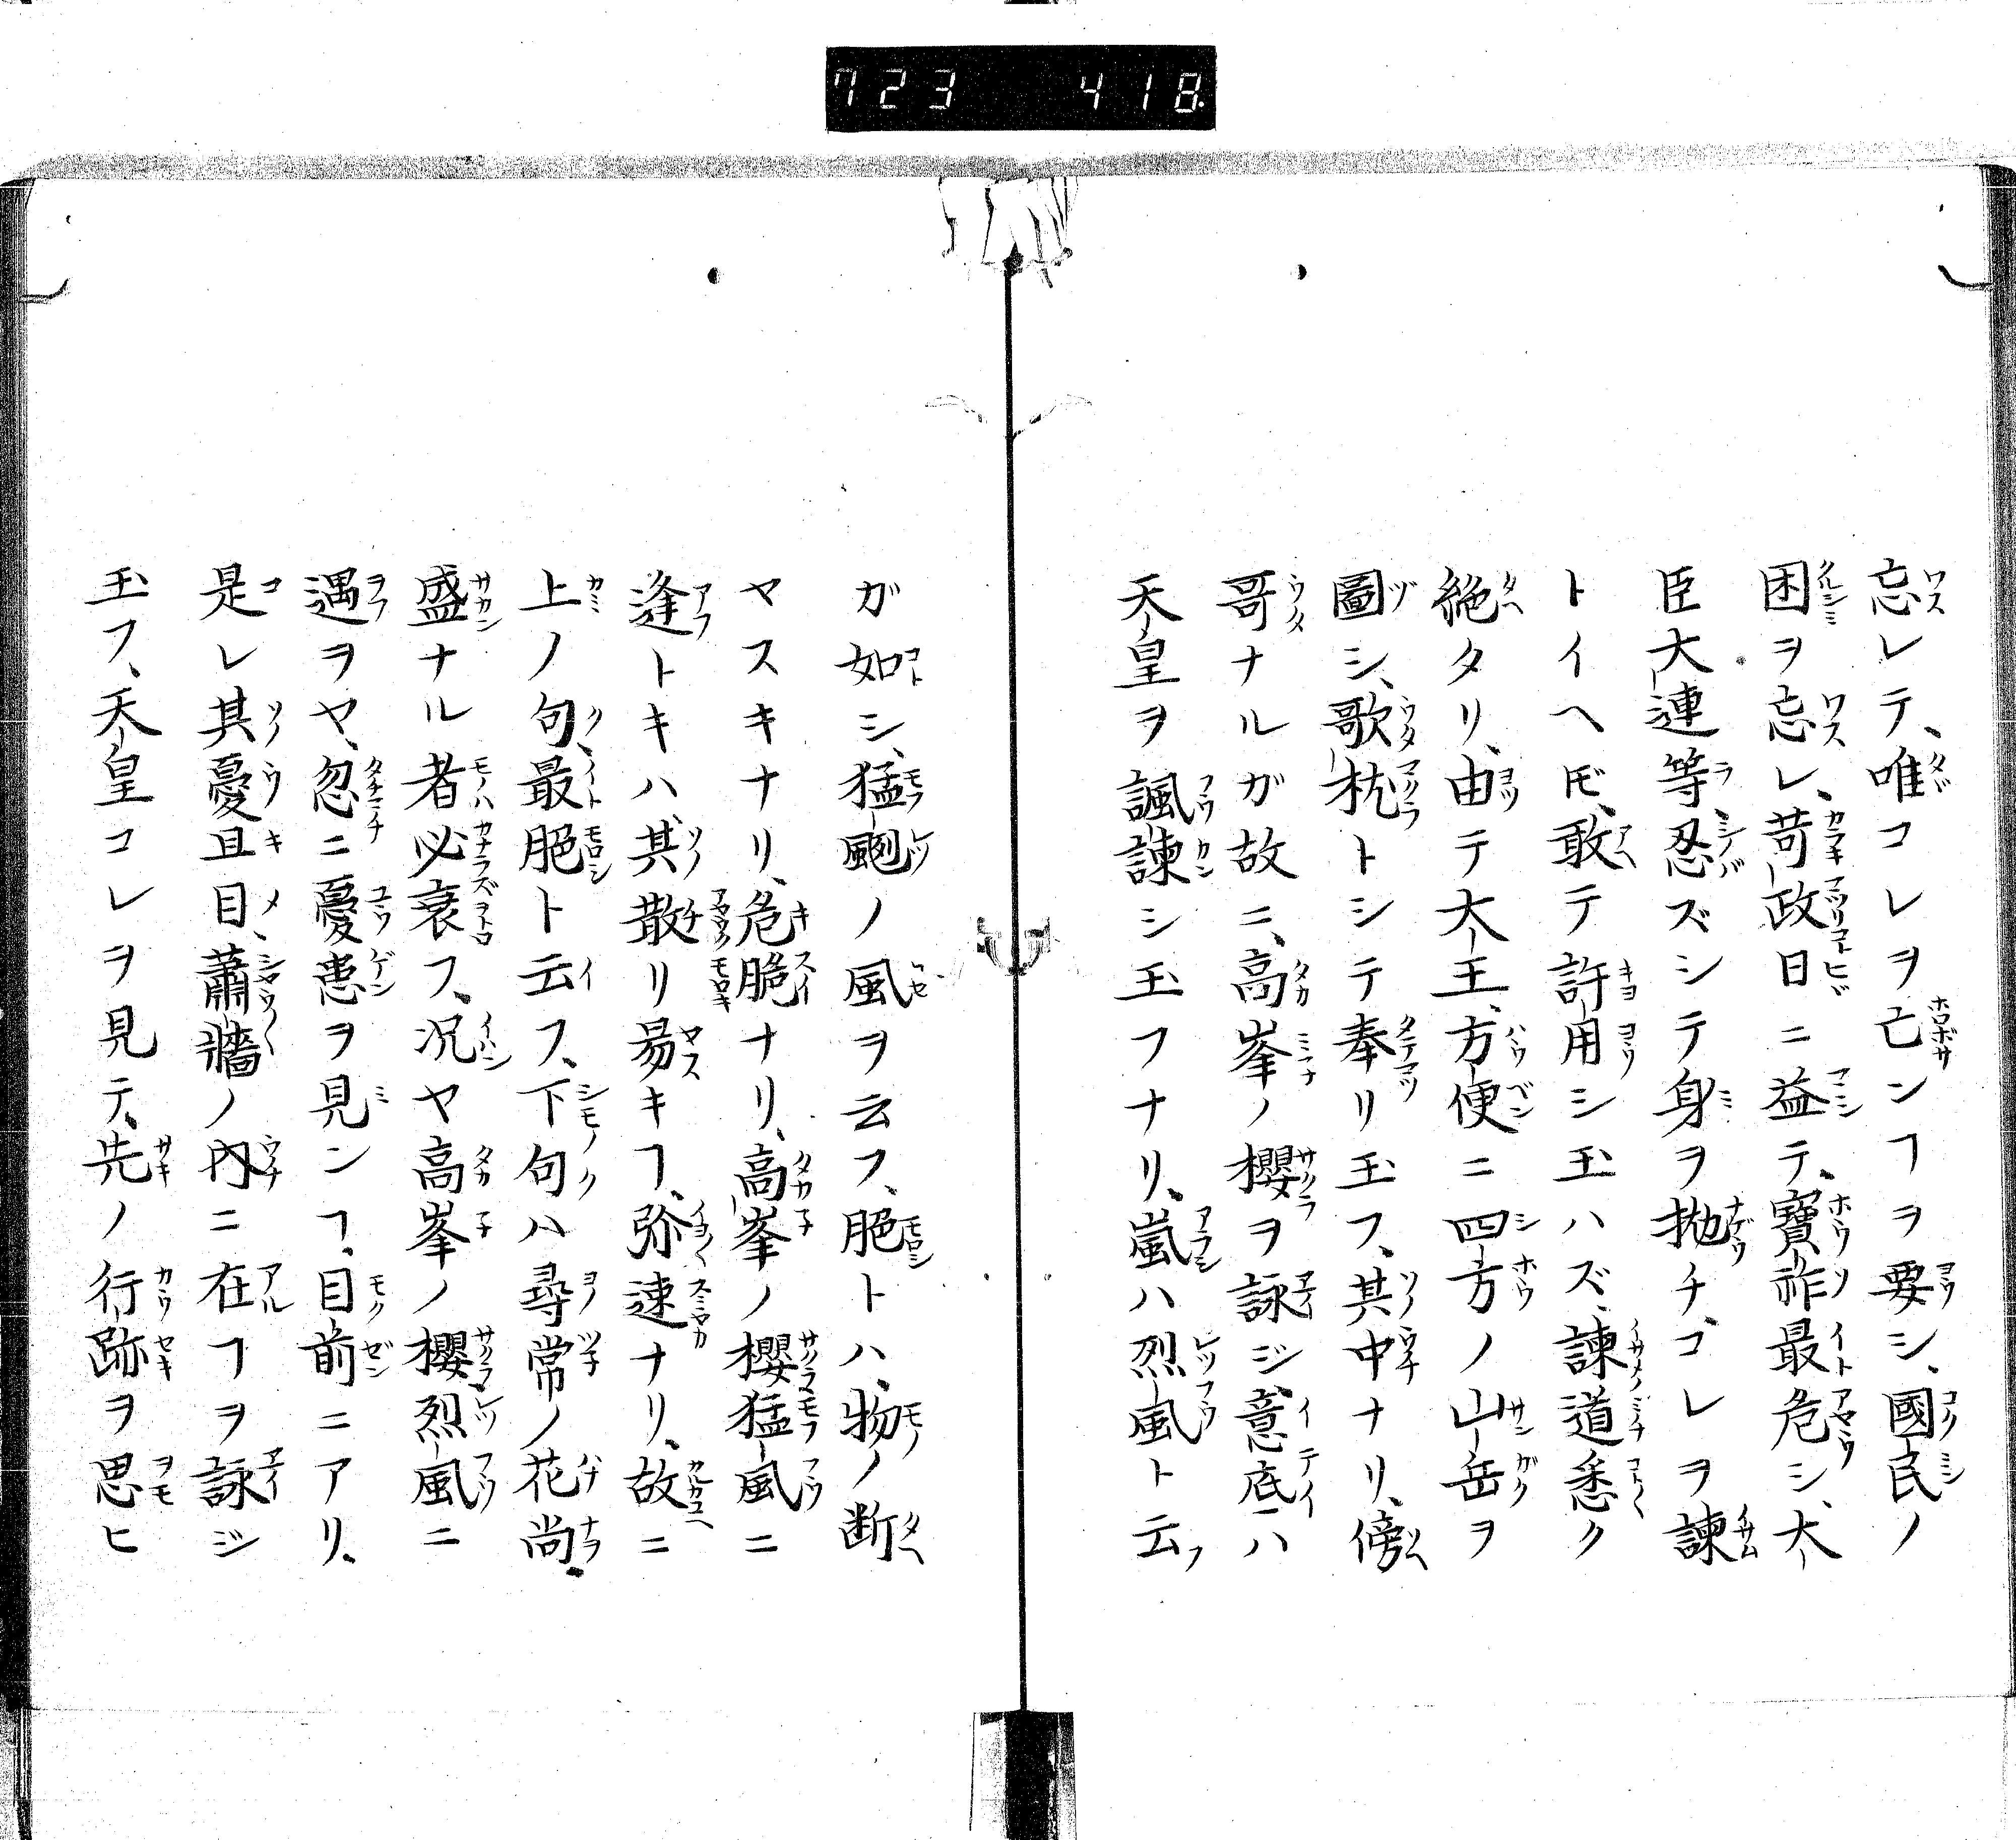 723 418.
忘レテ、唯コレヲ亡ンヿヲ要シ、國民ノ
困ヲ忘レ、苛政日ニ益テ、寶祚最危シ、大
臣大連等、忍ズシテ身ヲ拋チ、コレヲ諫
トイヘ𪜈、敢テ許用シ玉ハズ、諫道悉ク
絶タリ、由テ大王、方便ニ四方ノ山岳ヲ
圖シ、歌枕トシテ奉リ玉フ、其中ナリ、傍
哥ナルガ故ニ、高峯ノ櫻ヲ詠ジ、意底ニハ
天皇ヲ諷諫シ玉フナリ、嵐ハ烈風ト云
ガ如シ、猛颲ノ風ヲ云フ、脆トハ、物ノ断
ヤスキナリ、危脆ナリ、高峯ノ櫻猛風ニ
逢トキハ、其散リ易キヿ、弥速ナリ、故ニ
上ノ句、最脆ト云フ、下句ハ尋常ノ花尚、
盛ナル者必衰フ、况ヤ高峯ノ櫻烈風ニ
遇ヲヤ、忽ニ憂患ヲ見ンヿ、目前ニアリ、
是レ其憂且目、蕭牆ノ內ニ在ヿヲ詠ジ
玉フ、天皇コレヲ見テ、先ノ行跡ヲ思ヒ